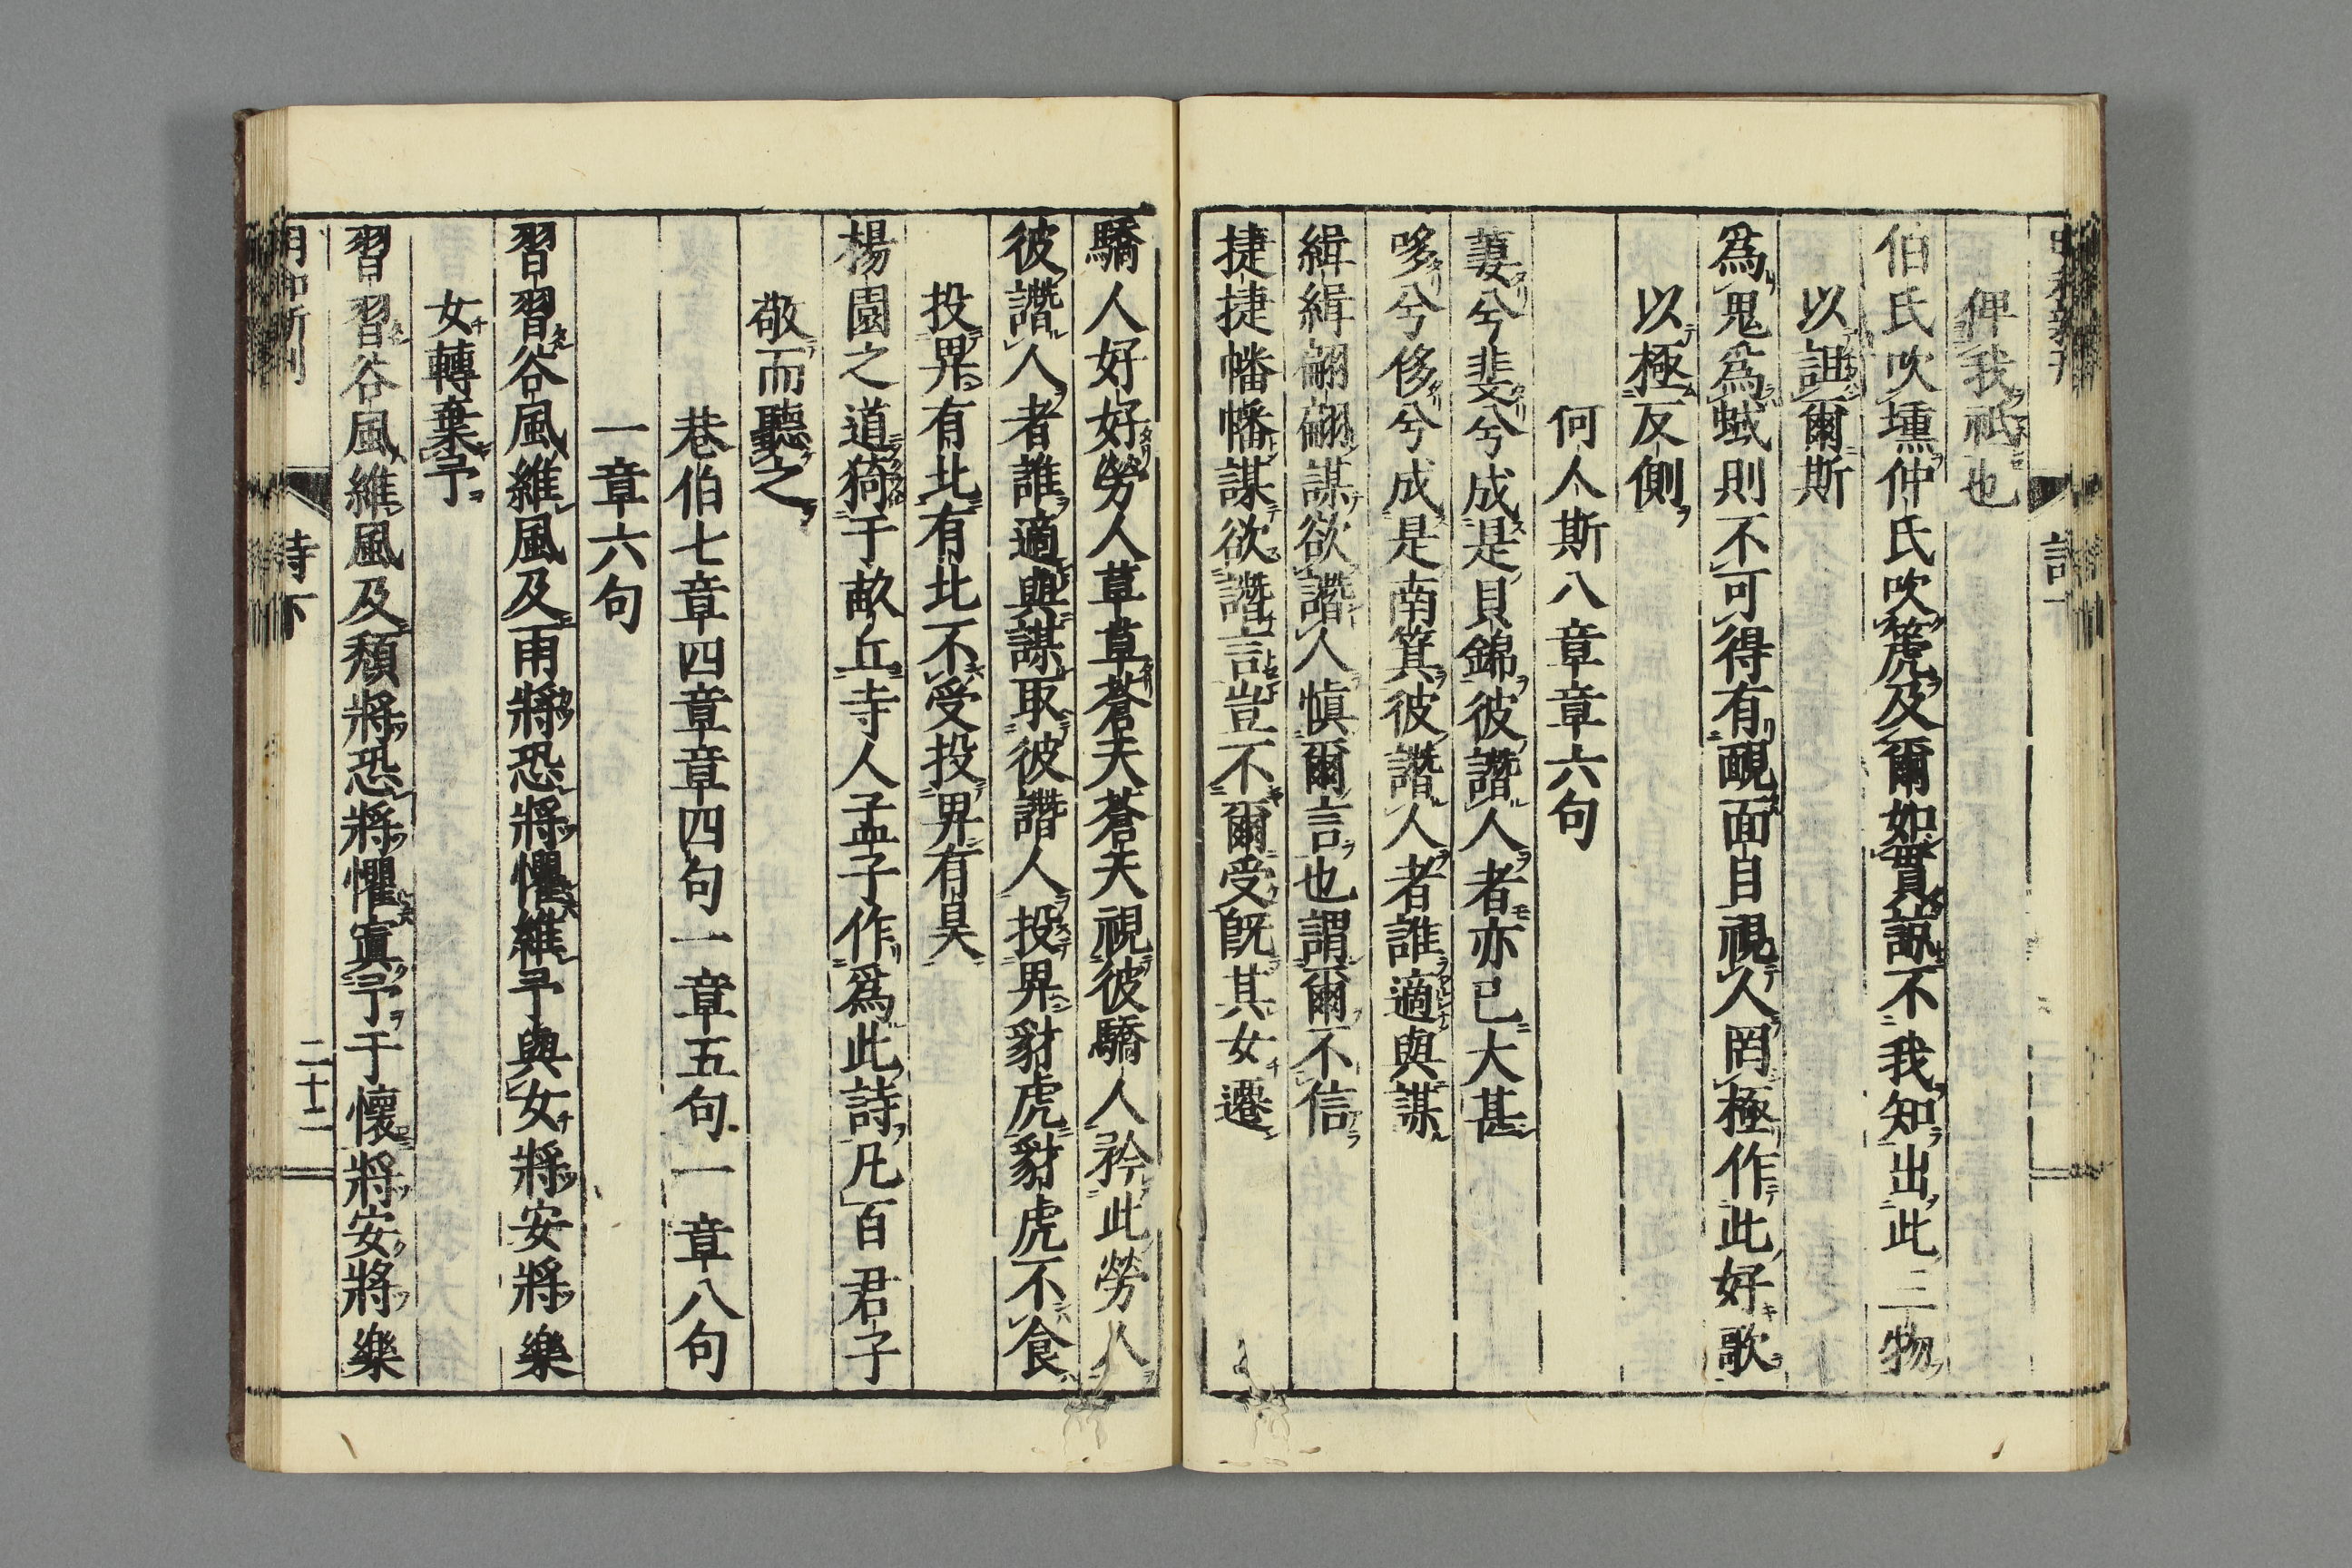 俾我祇也
伯氏吹壎仲氏吹篪及爾如貫諒不我知出此三物
以詛爾斯
爲鬼爲蜮則不可得有靦面目視人罔極作此好歌
以極反側
何人斯八章章六句
萋兮斐兮成是貝錦彼譖人者亦已大甚
哆兮侈兮成是南箕彼譖人者誰適與謀
緝緝翩翩謀欲譖人愼爾言也謂爾不信
捷捷幡幡謀欲譖言豈不爾受旣其女遷
驕人好好勞人草草蒼天蒼天視彼驕人矜此勞人
彼譖人者誰適與謀取彼譖人投畀豺虎豺虎不食
投畀有北有北不受投畀有昊
楊園之道猗于畝丘寺人孟子作爲此詩凡百君子
敬而聽之
巷伯七章四章章四句一章五句一章八句
一章六句
習習谷風維風及雨將恐將懼維予與女將安將樂
女轉棄予
習習谷風維風及頽將恐將懼寘予于懷將安將樂
詩下
二十二